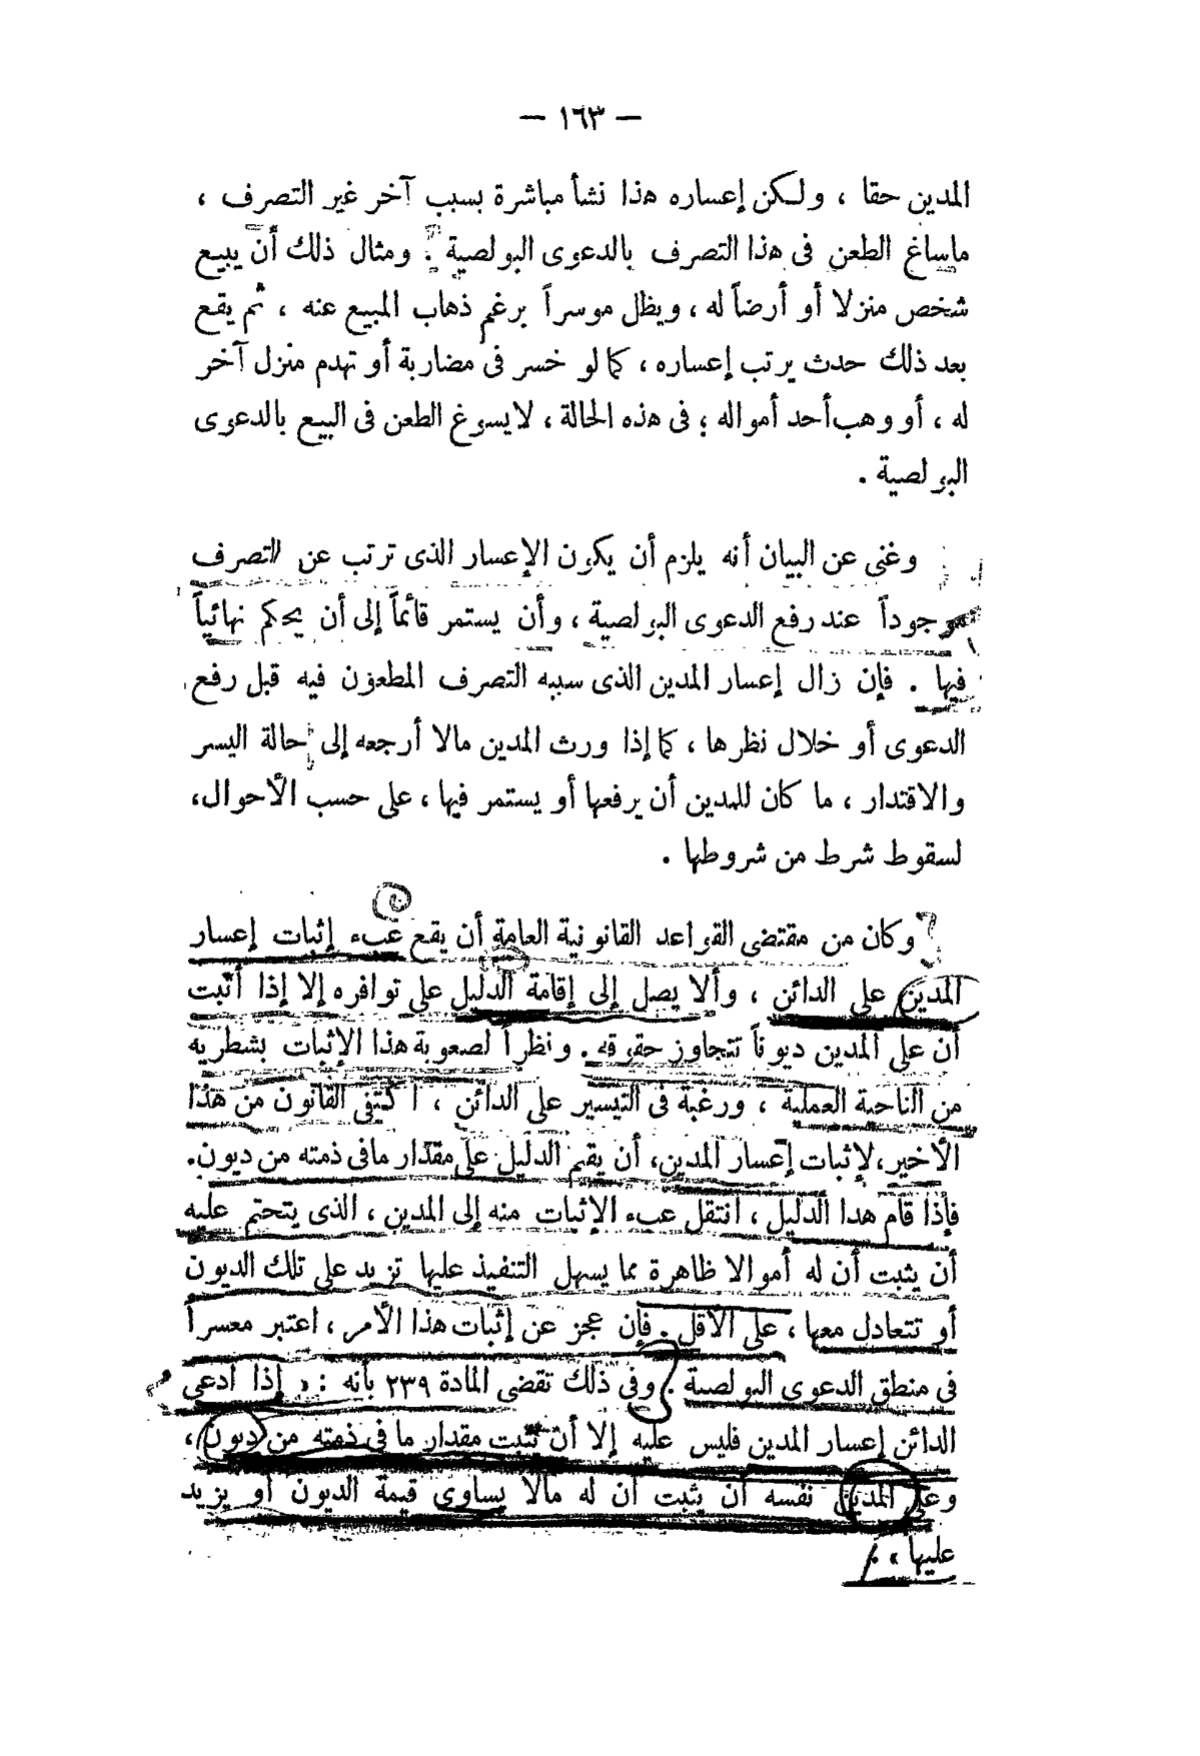 — ١٦٣ —
المدين حقا ، ولكن إعساره هذا نشأ مباشرة بسبب آخر غير التصرف ،
ماساغ الطعن فى هذا التصرف بالدعوى البولصية . ومثال ذلك أن يبيع
شخص منزلا أو أرضاً له ، ويظل موسراً برغم ذهاب المبيع عنه ، ثم يقع
بعد ذلك حدث يرتب إعساره ، كما لو خسر فى مضاربة أو تهدم منزل آخر
له ، أو وهب أحد أمواله ؛ فى هذه الحالة ، لا يسوغ الطعن فى البيع بالدعوى
البولصية .
وغنى عن البيان أنه يلزم أن يكون الإعسار الذى ترتب عن التصرف
موجوداً عند رفع الدعوى البولصية ، وأن يستمر قائماً إلى أن يحكم نهائياً
فيها . فإن زال إعسار المدين الذى سببه التصرف المطعون فيه قبل رفع
الدعوى أو خلال نظرها ، كما إذا ورث المدين مالا أرجعه إلى حالة اليسر
والاقتدار ، ما كان للمدين أن يرفعها أو يستمر فيها ، على حسب الأحوال،
لسقوط شرط من شروطها .
وكان من مقتضى القواعد القانونية العامة أن يقع عبء إثبات إعسار
المدين على الدائن ، وألا يصل إلى إقامة الدليل على توافره إلا إذا أثبت
أن على المدين ديوناً تتجاوز حقوقه . ونظراً لصعوبة هذا الإثبات بشطريه
من الناحية العملية ، ورغبة فى التيسير على الدائن ، اكتفى القانون من هذا
الأخير، لإثبات إعسار المدين، أن يقيم الدليل على مقدار مافى ذمته من ديون.
فإذا قام هذا الدليل ، انتقل عبء الإثبات منه إلى المدين ، الذى يتحتم عليه
أن يثبت أن له أموالا ظاهرة مما يسهل التنفيذ عليها تزيد على تلك الديون
أو تتعادل معها ، على الأقل . فإن عجز عن إثبات هذا الأمر ، اعتبر معسراً
فى منطق الدعوى البولصية . وفى ذلك تقضى المادة ٢٣٩ بأنه : « إذا ادعى
الدائن إعسار المدين فليس عليه إلا أن يثبت مقدار ما فى ذمته من ديون ،
وعلى المدين نفسه أن يثبت أن له مالا يساوى قيمة الديون أو يزيد
عليها » .